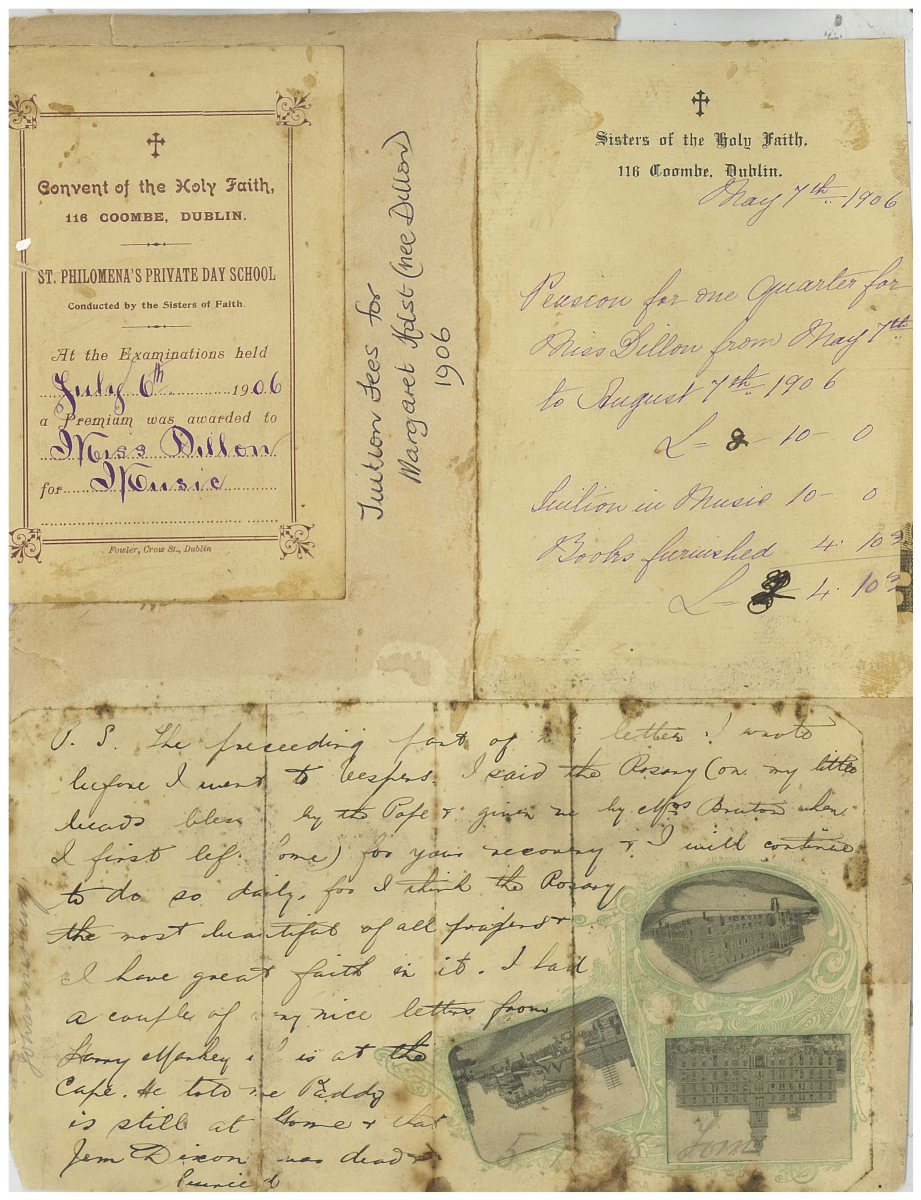 Convent of the Holy Faith,
116 COOMBE, DUBLIN.
ST. PHILOMENA'S PRIVATE DAY SCHOOL
Conducted by the Sisters of Faith.
At the Examinations held
July 6th 1906
a Premium was awarded to
Miss Dillon
for Music
Fowler, Crow St., Dublin
Tuition Fees for
Margaret (nee Dillon)
1906
Sisters of the Holy Faith,
116 Coombe, Dublin.
May 7th 1906
Pension for one Quarter for
Miss Dillon from May 7th
to August 7th 1906
£ = 10 - 0
Tuition in Music 10 - 0
Books furnished 4. 10
£ = 4. 10
P. S. The preceeding part of letter I wrote
before I went to Vespers. I said the Rosary (on my little
beads by the Pope & given me by Mrs Bruton when
I first ) for your recovery & I will continue
to do so daily, for I think the Rosary
the most beautiful of all prayers &
I have great faith in it. I had
a couple of nice letters from
Larry Markey is at the
Cape. He told me Paddy
is still at home & that
Jem Dixon was dead &
Johannesburg
Tom